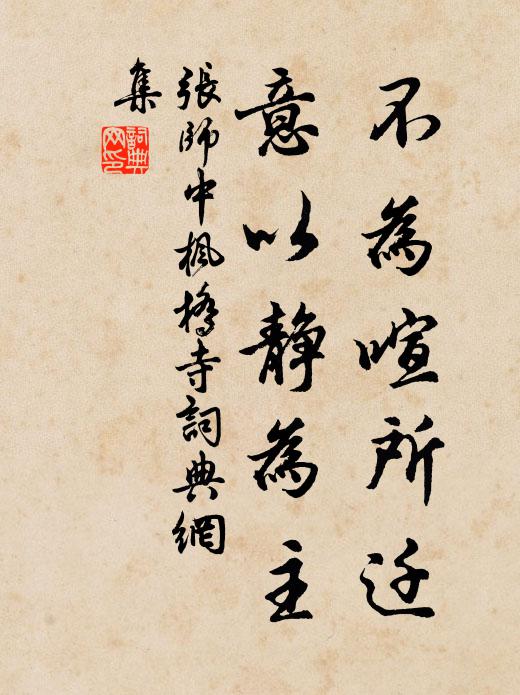 不為喧所迁
意以静為主
張師中楓橋寺詞典網
集
詞典
网印